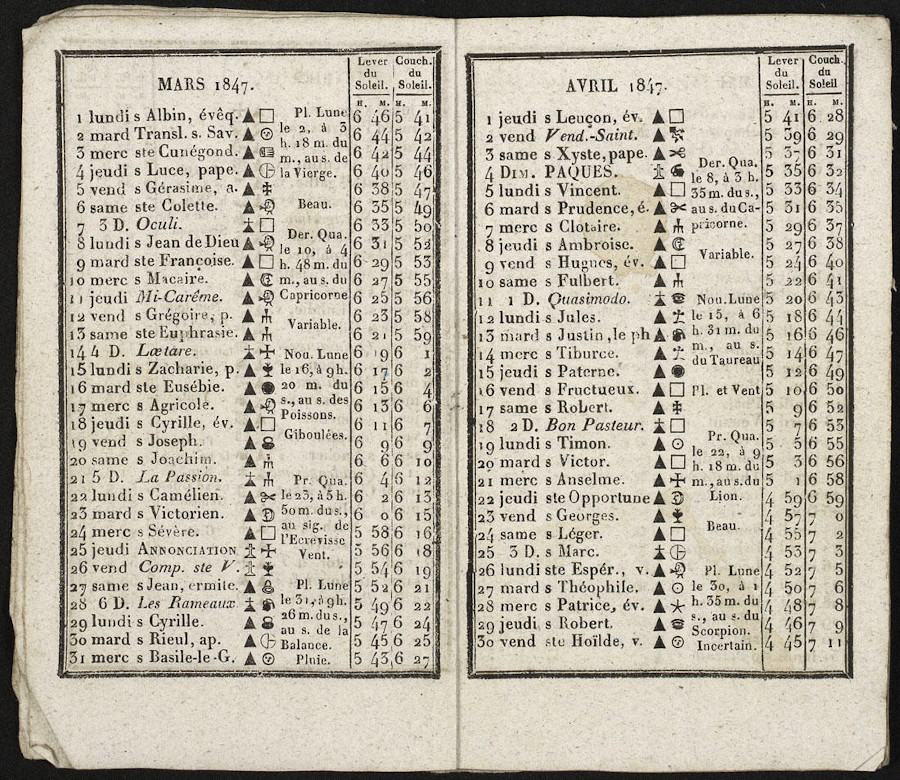 MARS 1847.
Lever du Soleil.
Couch. du Soleil.
H. M. H. M.
1 lundi s Albin, évêq. 6 46 5 41
2 mard Transl. s. Sav. 6 44 5 42
3 merc ste Cunégond. 6 42 5 44
4 jeudi s Luce, pape. 6 40 5 46
5 vend s Gérasime, a. 6 38 5 47
6 same ste Colette. 6 35 5 49
7 3 D. Oculi. 6 33 5 50
8 lundi s Jean de Dieu 6 31 5 52
9 mard ste Francoise. 6 29 5 53
10 merc s Macaire. 6 27 5 55
11 jeudi Mi-Carême. 6 25 5 56
12 vend s Grégoire, p. 6 23 5 58
13 same ste Euphrasie. 6 21 5 59
14 4 D. Lætare. 6 19 6 1
15 lundi s Zacharie, p. 6 17 6 2
16 mard ste Eusébie. 6 15 6 4
17 merc s Agricole. 6 13 6 6
18 jeudi s Cyrille, év. 6 11 6 7
19 vend s Joseph. 6 9 6 9
20 same s Joachim. 6 6 6 10
21 5 D. La Passion. 6 4 6 12
22 lundi s Camélien. 6 2 6 13
23 mard s Victorien. 6 0 6 15
24 merc s Sévère. 5 58 6 16
25 jeudi ANNONCIATION 5 56 6 18
26 vend Comp. ste V. 5 54 6 19
27 same s Jean, ermite. 5 52 6 21
28 6 D. Les Rameaux. 5 49 6 22
29 lundi s Cyrille. 5 47 6 24
30 mard s Rieul, ap. 5 45 6 25
31 merc s Basile-le-G. 5 43 6 27
Pl. Lune
le 2, à 3
h. 18 m. du
m., au s. de
la Vierge.
Beau.
Der. Qua.
le 10, à 4
h. 48 m. du
m., au s. du
Capricorne
Variable.
Nou. Lune
le 16, à 9h.
20 m. du
s., au s. des
Poissons.
Giboulées.
Pr. Qua.
le 23, à 5 h.
50m. du s.,
au sig. de
l'Ecrevisse
Vent.
Pl. Lune
le 31, à 9h.
26 m. du s.,
au s. de la
Balance.
Pluie.
AVRIL 1847.
Lever du Soleil.
Couch. du Soleil
H. M. H. M.
1 jeudi s Leuçon, év. 5 41 6 28
2 vend Vend.-Saint. 5 39 6 29
3 same s Xyste, pape. 5 37 6 31
4 DIM. PAQUES. 5 35 6 32
5 lundi s Vincent. 5 33 6 34
6 mard s Prudence, é. 5 31 6 35
7 merc s Clotaire. 5 29 6 37
8 jeudi s Ambroise. 5 27 6 38
9 vend s Hugues, év. 5 24 6 40
10 same s Fulbert. 5 22 6 41
11 1 D. Quasimodo. 5 20 6 43
12 lundi s Jules. 5 18 6 44
13 mard s Justin, le ph 5 16 6 46
14 merc s Tiburce. 5 14 6 47
15 jeudi s Paterne. 5 12 6 49
16 vend s Fructueux. 5 10 6 50
17 same s Robert. 5 9 6 52
18 2 D. Bon Pasteur. 5 7 6 53
19 lundi s Timon. 5 5 6 55
20 mard s Victor. 5 3 6 56
21 merc s Anselme. 5 1 6 58
22 jeudi ste Opportune 4 59 6 59
23 vend s Georges. 4 57 7 0
24 same s Léger. 4 55 7 2
25 3 D. s Marc. 4 53 7 3
26 lundi ste Espér., v. 4 52 7 5
27 mard s Théophile. 4 50 7 6
28 merc s Patrice, év. 4 48 7 8
29 jeudi s Robert. 4 46 7 9
30 vend ste Hoïlde, v. 4 45 7 11
Der. Qua.
le 8, à 3 h.
35 m. du s.,
au s. du Ca-
pricorne.
Variable.
Nou. Lune
le 15, à 6
h. 31 m. du
m., au s.
du Taureau
Pl. et Vent
Pr. Qua.
le 22, à 9
h. 18 m. du
m., au s. du
Lion.
Beau.
Pl. Lune
le 30, à 1
h. 35 m. du
s., au s. du
Scorpion.
Incertain.